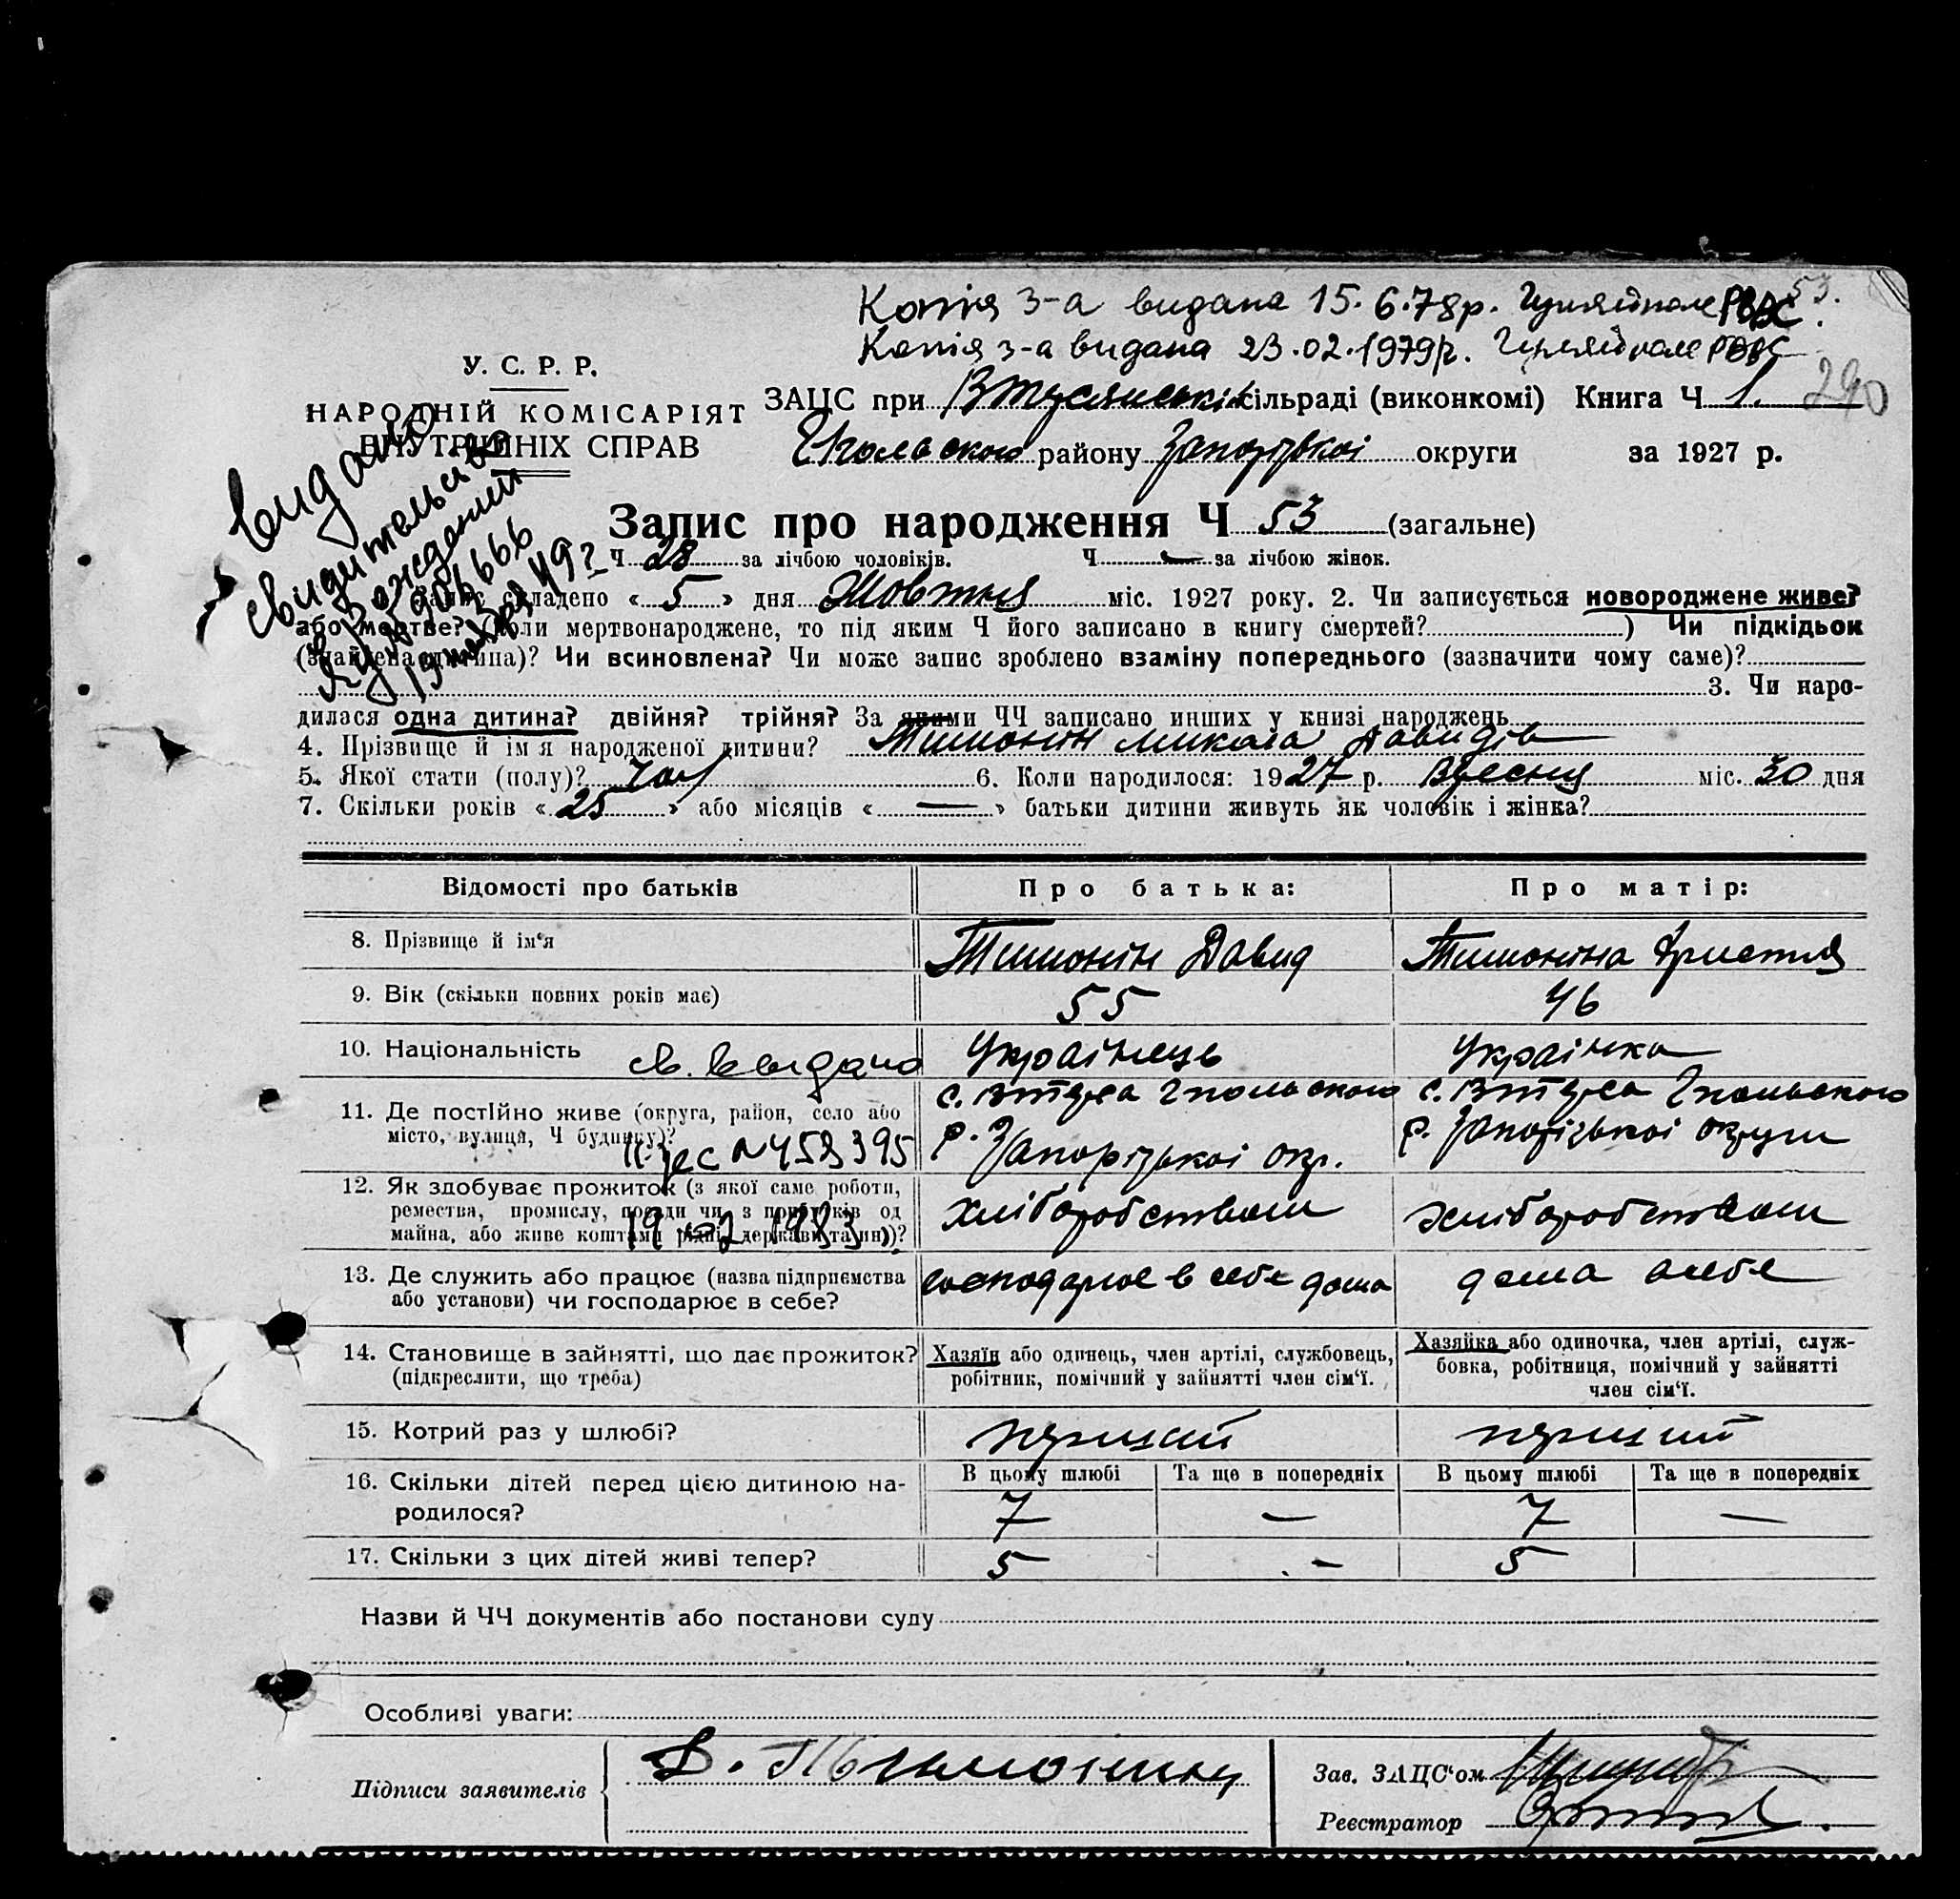 53.
Копія з-а видана 15.6.78р. Гуляйполе РВВС
Копія з-а видана 23.02.1979р. Гуляйполе РВВС
У. С. Р. Р.
НАРОДНІЙ КОМІСАРІЯТ
ВНУТРІШНІХ СПРАВ
ЗАЦС при сільраді (виконкомі) Книга Ч 1. 290
району Запорізької округи за 1927 р.
Видано
свидетельство
о рождении
49 г
Запис про народження Ч 53 (загальне)
Ч 28 за лічбою чоловіків. Ч — за лічбою жінок.
складено « 5 » дня Жовтня міс. 1927 року. 2. Чи записується новороджене живе?
або мертве? (коли мертвонароджене, то під яким Ч його записано в книгу смертей? ) Чи підкідьок
(знайдена дитина)? Чи всиновлена? Чи може запис зроблено взаміну попереднього (зазначити чому саме)?
3. Чи наро-
дилася одна дитина? двійня? трійня? За якими ЧЧ записано инших у книзі народжень
4. Прізвище й ім'я народженої дитини? Тимонін Микола Давидів
5. Якої стати (полу)? чол 6. Коли народилося: 1927 р. Вересня міс. 30 дня
7. Скільки років « 25 » або місяців « — » батьки дитини живуть як чоловік і жінка?
Відомості про батьків Про батька: Про матір:
8. Прізвище й ім'я Тимонін Давид Тимоніна Христина
9. Вік (скільки повних років має) 55 46
10. Національність св. видано Українець Українка
11. Де постійно живе (округа, район, село або
місто, вулиця, Ч будинку)?
N 453395
с. Втуса Гпольського
р. Запорізької окр.
с. Втуса Гпольського
р. Запорізької округи
12. Як здобуває прожиток (з якої саме роботи,
ремества, промислу, посади чи з прибутків од
майна, або живе коштами рідні, держави та ин.)?
1983
хліборобством хліборобством
13. Де служить або працює (назва підприємства
або установи) чи господарює в себе?
господарює в себе дома дома в себе
14. Становище в зайнятті, що дає прожиток?
(підкреслити, що треба)
Хазяїн або одинець, член артілі, службовець,
робітник, помічний у зайнятті член сім'ї.
Хазяйка або одиночка, член артілі, служ-
бовка, робітниця, помічний у зайнятті
член сім'ї.
15. Котрий раз у шлюбі? перший перший
16. Скільки дітей перед цією дитиною на-
родилося?
В цьому шлюбі Та ще в попередніх В цьому шлюбі Та ще в попередніх
7 — 7 —
17. Скільки з цих дітей живі тепер? 5 — 5
Назви й ЧЧ документів або постанови суду
Особливі уваги:
Підписи заявителів
Зав. ЗАЦС'ом
Реєстратор